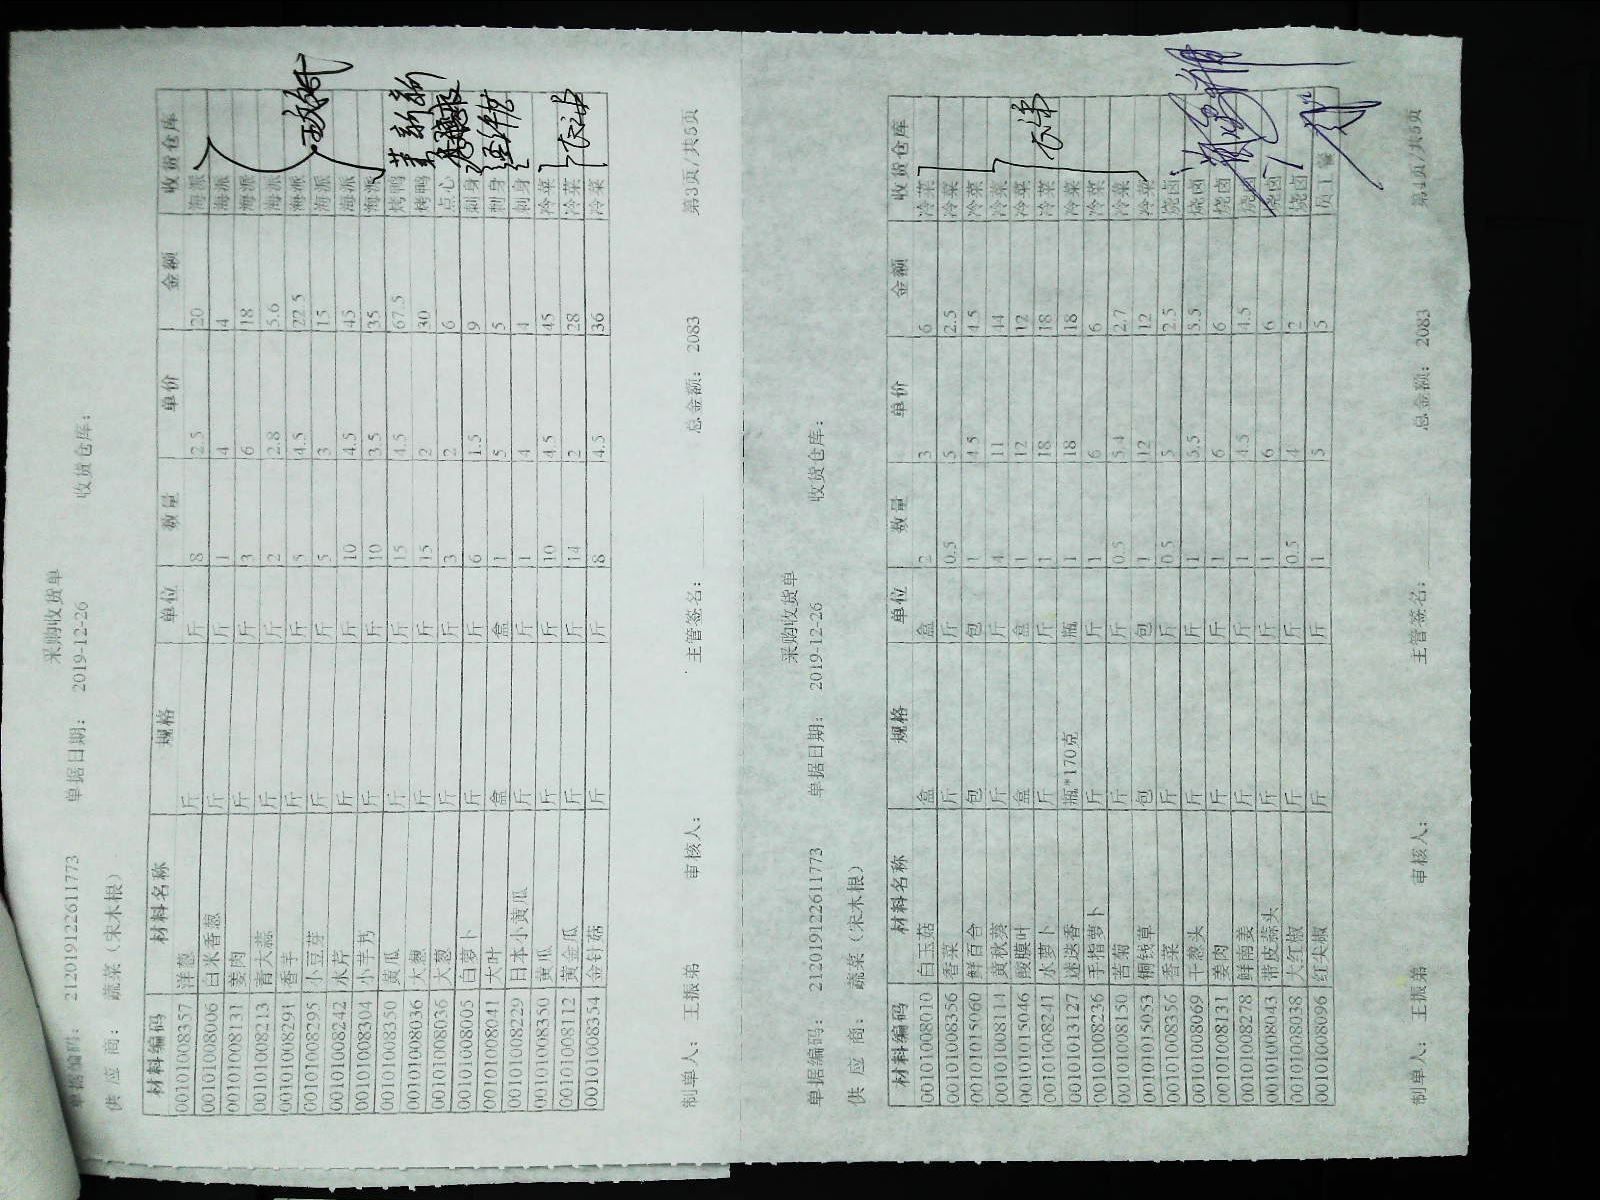 采购收货单
单据编码: 21201912261​1773 单据日期: 2019-12-26 收货仓库:
供 应 商: 蔬菜(宋木根)
材料编码 材料名称 规格 单位 数量 单价 金额 收货仓库
00101008357 洋葱 斤 斤 8 2.5 20 海派
00101008006 白米香葱 斤 斤 1 4 4 海派
00101008131 姜肉 斤 斤 3 6 18 海派
00101008213 青大蒜 斤 斤 2 2.8 5.6 海派
00101008291 香芋 斤 斤 5 4.5 22.5 海派
00101008295 小豆芽 斤 斤 5 3 15 海派
00101008242 水芹 斤 斤 10 4.5 45 海派
00101008304 小芋艿 斤 斤 10 3.5 35 海派
00101008350 黄瓜 斤 斤 15 4.5 67.5 烤鸭
00101008036 大葱 斤 斤 15 2 30 烤鸭
00101008036 大葱 斤 斤 3 2 6 点心
00101008005 白萝卜 斤 斤 6 1.5 9 刺身
00101008041 大叶 盒 盒 1 5 5 刺身
00101008229 日本小黄瓜 斤 斤 1 4 4 刺身
00101008350 黄瓜 斤 斤 10 4.5 45 冷菜
00101008112 黄金瓜 斤 斤 14 2 28 冷菜
00101008354 金针菇 斤 斤 8 4.5 36 冷菜
制单人: 王振弟 审核人: 主管签名: 总金额: 2083 第3页/共5页
采购收货单
单据编码: 212019122611773 单据日期: 2019-12-26 收货仓库:
供 应 商: 蔬菜(宋木根)
材料编码 材料名称 规格 单位 数量 单价 金额 收货仓库
00101008010 白玉菇 盒 盒 2 3 6 冷菜
00101008356 香菜 斤 斤 0.5 5 2.5 冷菜
00101015060 鲜百合 包 包 1 4.5 4.5 冷菜
00101008114 黄秋葵 斤 斤 4 11 44 冷菜
00101015046 酸膜叶 盒 盒 1 12 12 冷菜
00101008241 水萝卜 斤 斤 1 18 18 冷菜
00101013127 迷迭香 瓶*170克 瓶 1 18 18 冷菜
00101008226 手指萝卜 斤 斤 1 6 6 冷菜
00101008150 苦菊 斤 斤 0.5 5.4 2.7 冷菜
00101015053 铜钱草 包 包 1 12 12 冷菜
00101008356 香菜 斤 斤 0.5 5 2.5 烧卤
00101008069 干葱头 斤 斤 1 5.5 5.5 烧卤
00101008131 姜肉 斤 斤 1 6 6 烧卤
00101008278 鲜南姜 斤 斤 1 4.5 4.5 烧卤
00101008043 带皮蒜头 斤 斤 1 6 6 烧卤
00101008038 大红椒 斤 斤 0.5 4 2 烧卤
00101008096 红尖椒 斤 斤 1 5 5 员工餐
制单人: 王振弟 审核人: 主管签名: 总金额: 2083 第4页/共5页